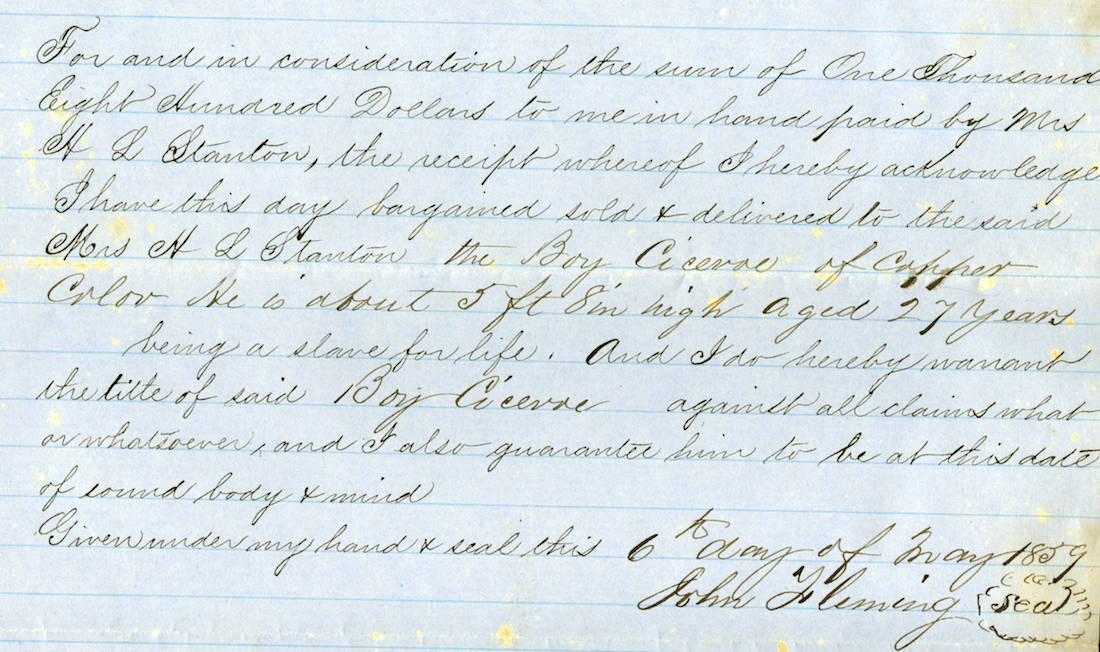 For and in consideration of the sum of One Thousand
Eight Hundred Dollars to me in hand paid by Mrs
H L Stanton, the receipt whereof I hereby acknowledge
I have this day bargained sold & delivered to the said
Mrs H L Stanton the Boy Ciceroe of Copper
Color He is about 5 ft 8 in high aged 27 Years
being a slave for life. And I do hereby warrant
the title of said Boy Ciceroe against all claims what
or whatsoever, and I also guarantee him to be at this date
of sound body & mind
Given under my hand & seal this 6th day of May 1859
John Fleming Seal